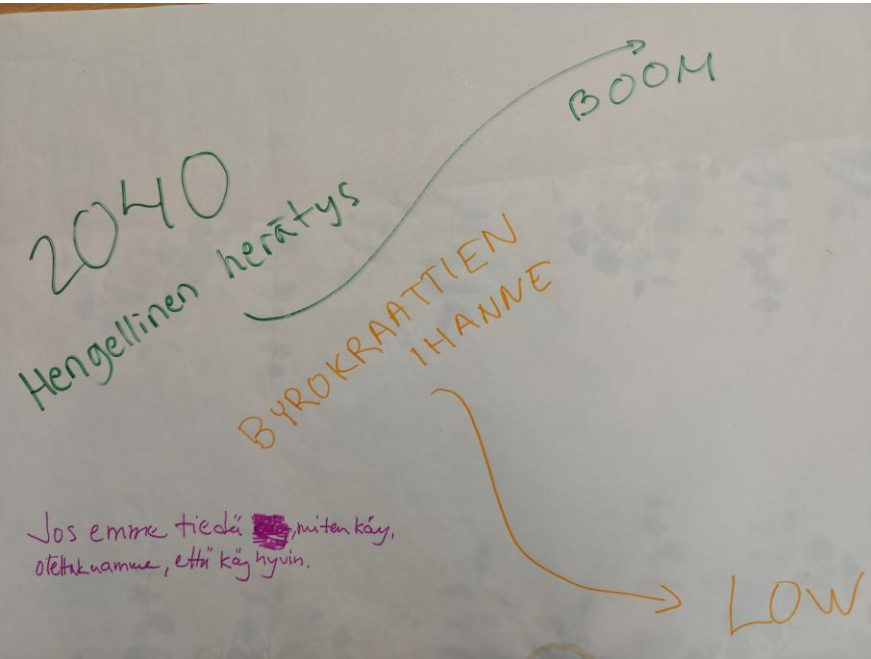 2040
Hengellinen herätys
BOOM
BYROKRAATTIEN
IHANNE
LOW
Jos emme tiedä, miten käy,
, että käy hyvin.